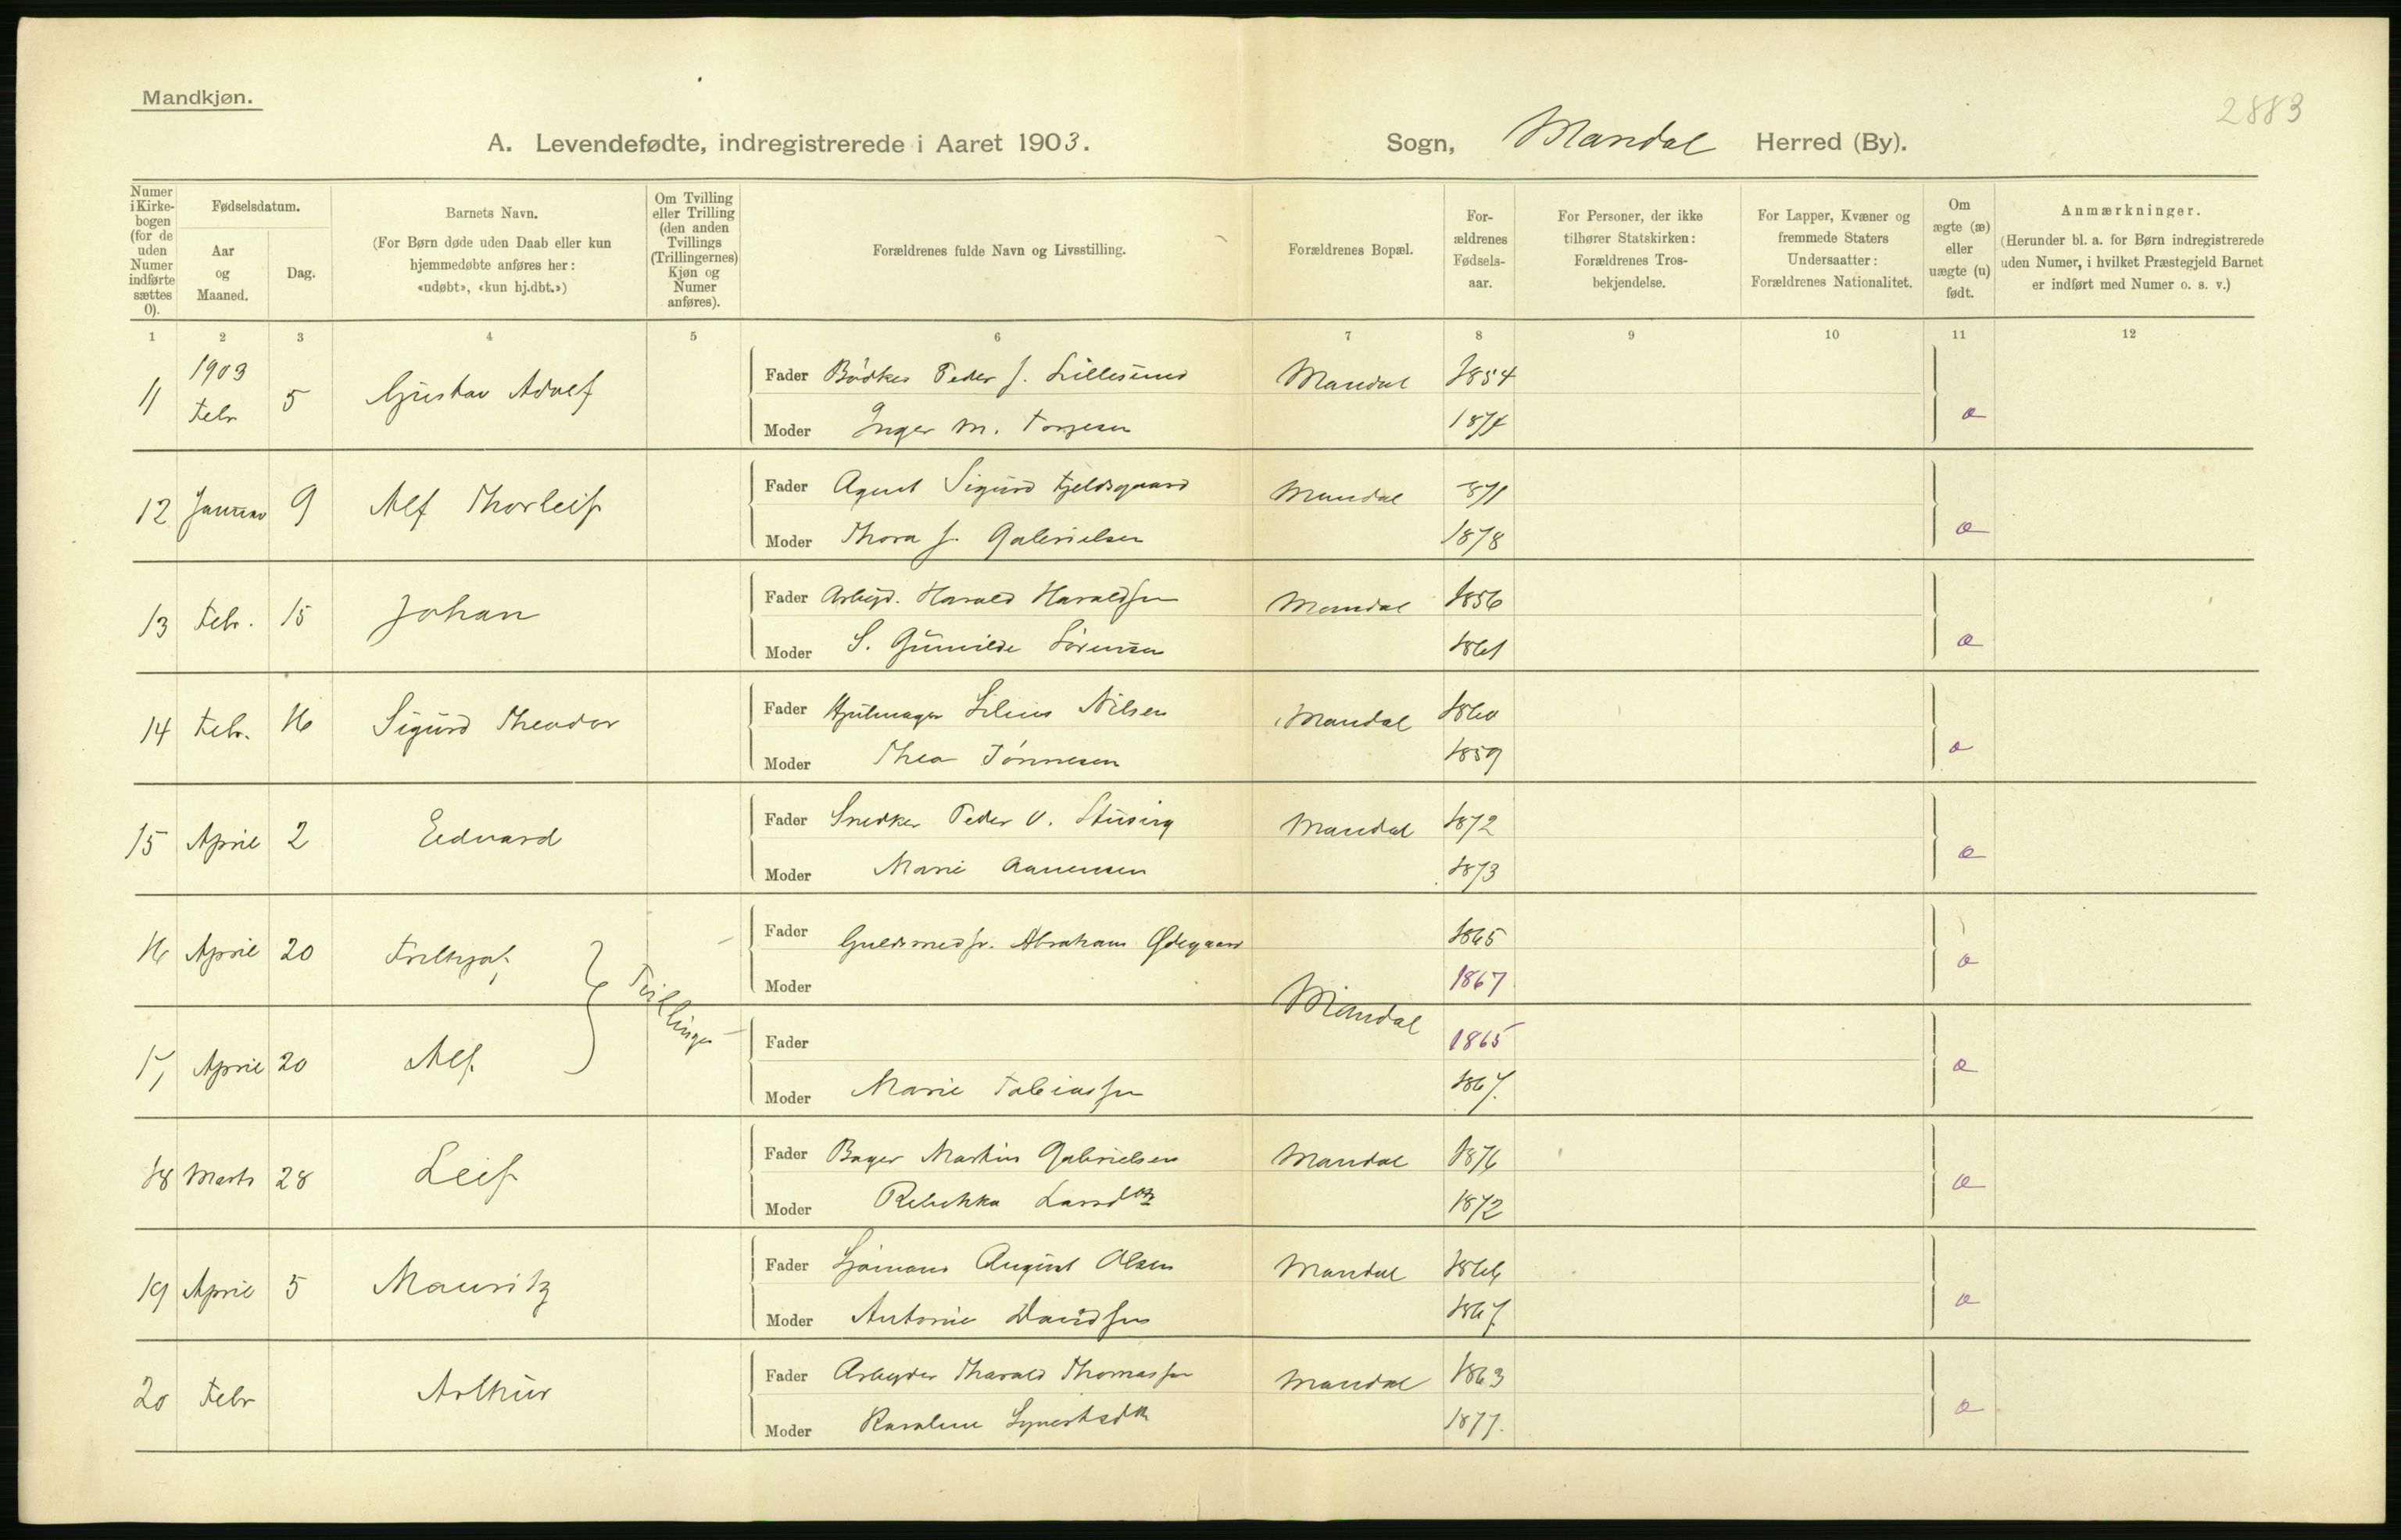 Mandkjøn.
2883
A. Levendefødte, indregistrerede i Aaret 1903.
Sogn, Mandal Herred (By).
Numer i Kirke- bogen (for de uden Numer indførte sættes 0).
Fødselsdatum.
Aar og Maaned.
Dag.
Barnets Navn.
(For Børn døde uden Daab eller kun hjemmedøbte anføres her: «udøbt», «kun hj.dbt.»)
Om Tvilling eller Trilling (den anden Tvillings (Trillingernes) Kjøn og Numer anføres).
Forældrenes fulde Navn og Livsstilling.
Forældrenes Bopæl.
For- ældrenes Fødsels- aar.
For Personer, der ikke tilhører Statskirken: Forældrenes Tros- bekjendelse.
For Lapper, Kvæner og fremmede Staters Undersaatter: Forældrenes Nationalitet.
Om ægte (æ) eller uægte (u) født.
Anmærkninger.
(Herunder bl. a. for Børn indregistrerede uden Numer, i hvilket Præstegjeld Barnet er indført med Numer o. s. v.)
1 2 3 4 5 6 7 8 9 10 11 12
11 1903 Febr 5 Gustav Adolf Fader Bødker Peder J. Lillesund Mandal 1854
Moder Inger M. Torjesen 1874 æ
12 Januar 9 Alf Thorleif Fader Agent Sigurd Fjeldsgaard Mandal 871
Moder Thora J. Gabrielsen 1878 æ
13 Febr. 15 Johan Fader Arbejd. Harald Haraldsen Mandal 1856
Moder S. Gunvilde Sørensen 1861 æ
14 Febr. 16 Sigurd Theodor Fader Hjulmager Silius Nilsen Mandal 1860
Moder Thea Tønnesen 1859 æ
15 April 2 Edvard Fader Snedker Peder O. Mandal 1872
Moder Marie Aanensen 1873 æ
16 April 20 Frithjof Fader Guldsmed Abraham Ødegaard 1865
Moder 1867 æ
Tvillinger Mandal
17 April 20 Alf. Fader 1865
Moder Marie Tobiassen 1867. æ
18 Marts 28 Leif Fader Bager Martin Gabrielsen Mandal 1876
Moder Rebekka Larsdtr 1872 æ
19 April 5 Mauritz Fader Sjømand August Olsen Mandal 1866
Moder Antonie Davidsen 1867 æ
20 Febr Arthur Fader Arbejder Harald Thomassen Mandal 1863
Moder 1877. æ